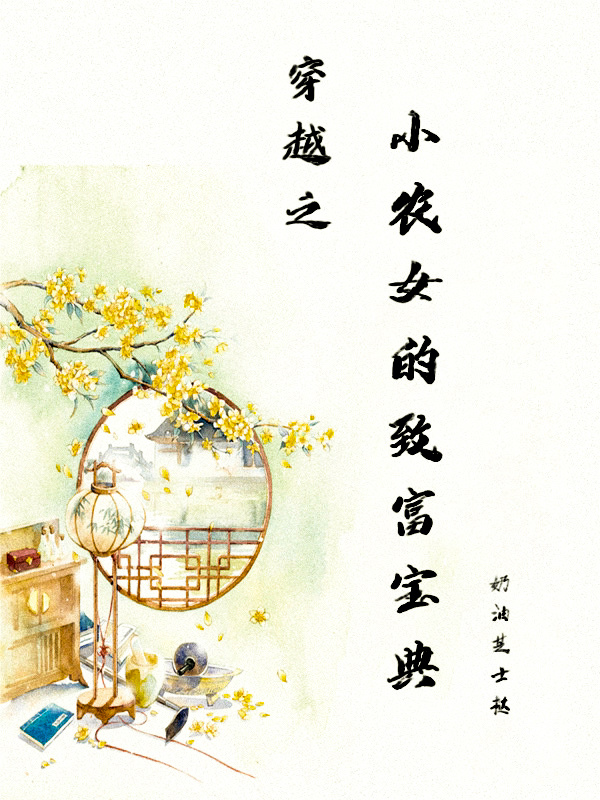 穿越之
小农女的致富宝典
奶油芝士挞